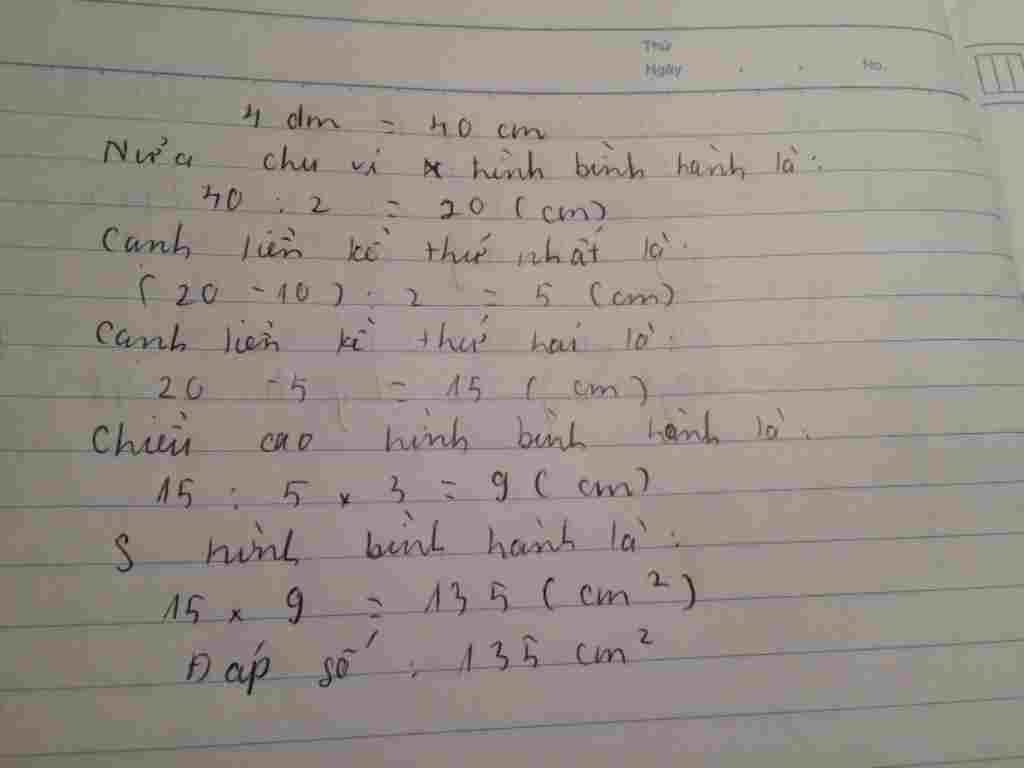 Thứ
Ngày . . No.
4 dm = 40 cm
Nửa chu vi hình bình hành là:
40 : 2 = 20 (cm)
Canh liền kề thứ nhất là:
(20 - 10) : 2 = 5 (cm)
Canh liền kề thứ hai là:
20 - 5 = 15 (cm)
Chiều cao hình bình hành là:
15 : 5 x 3 = 9 (cm)
S hình bình hành là:
15 x 9 = 135 (cm²)
Đáp số : 135 cm²